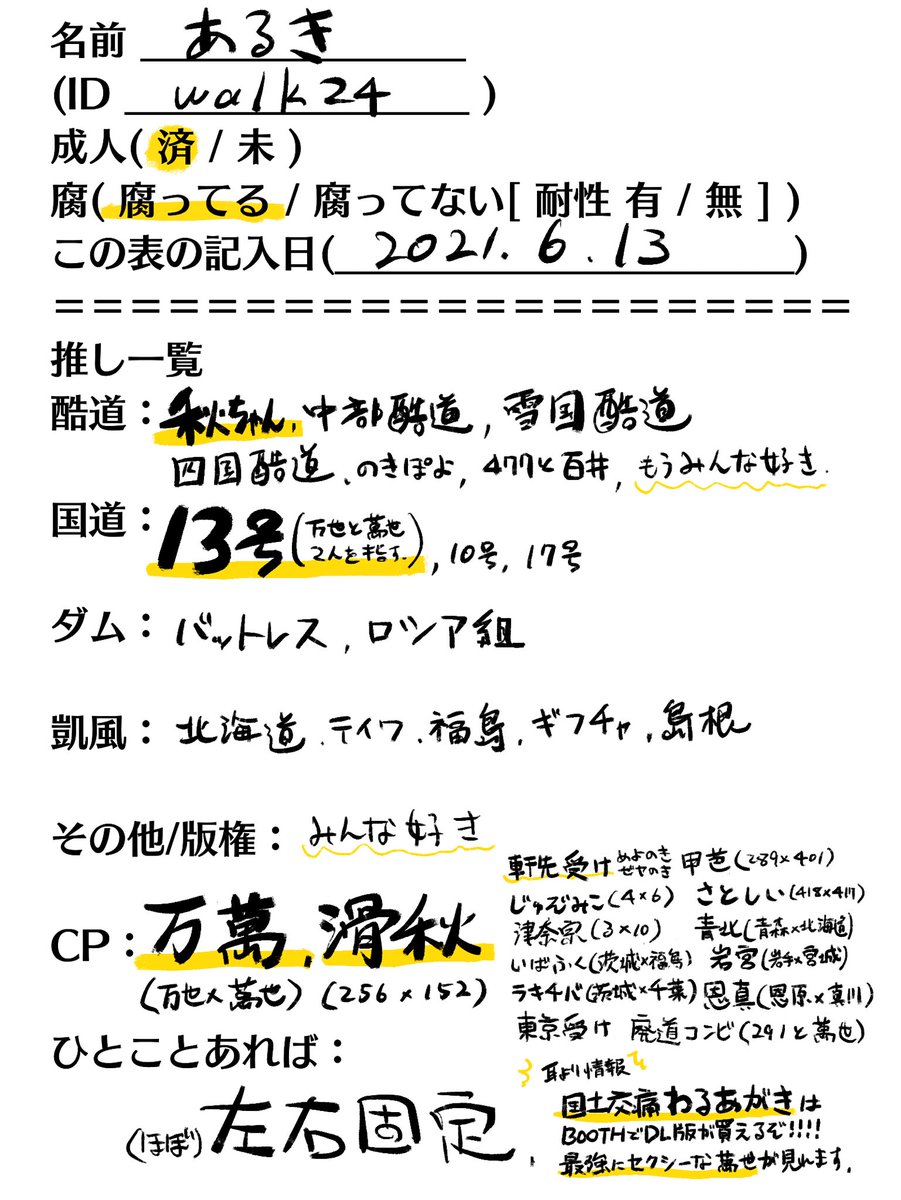 名前 あるき
(ID walk24 )
成人( 済 / 未 )
腐( 腐ってる / 腐ってない[ 耐性 有 / 無 ] )
この表の記入日( 2021. 6. 13 )
=====================
推し一覧
酷道：秋ちゃん, 中部酷道, 雪国酷道
四国酷道、のきぽよ, 477と百井, もうみんな好き.
国道：13号(万也と萬也
2人を指す.), 10号, 17号
ダム：バットレス, ロシア組
凱風：北海道、テイワ、福島, ギフチャ, 島根
その他/版権：みんな好き
CP：万萬, 滑秋
(万也×萬也) (256×152)
軒先受け めよのき
ゼヤのき
甲芭(289×401)
じゅぞみこ(4×6) さとしい(418×411)
津奈京(3×10) 青北(青森×北海道)
いばふく(茨城×福島) 岩宮(岩手×宮城)
ラキチバ(茨城×千葉) 恩真(恩原×真川)
東京受け 廃道コンビ(291と萬也)
ひとことあれば：
(ほぼ)左右固定
耳より情報
国土交痛わるあがきは
BOOTHでDL版が買えるぞ!!!!
最強にセクシーな萬也が見れます.